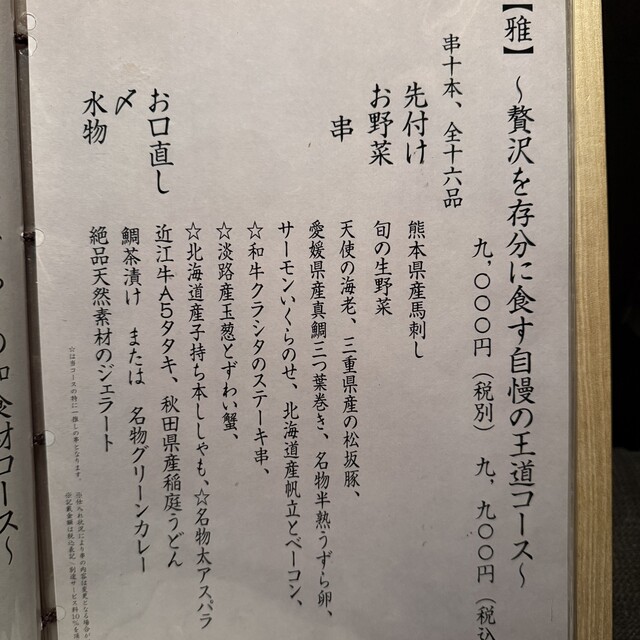 【雅】 ～贅沢を存分に食す自慢の王道コース～
九、〇〇〇円（税別） 九、九〇〇円（税込
串十本、全十六品
先付け 熊本県産馬刺し
お野菜 旬の生野菜
串 天使の海老、三重県産の松坂豚、
愛媛県産真鯛三つ葉巻き、名物半熟うずら卵、
サーモンいくらのせ、北海道産帆立とベーコン、
☆和牛クラシタのステーキ串、
☆淡路産玉葱とずわい蟹、
☆北海道産子持ち本ししゃも、☆名物太アスパラ
お口直し 近江牛A5タタキ、秋田県産稲庭うどん
〆 鯛茶漬け または 名物グリーンカレー
水物 絶品天然素材のジェラート
☆は当コースの特に一推しの串となります。
※仕入れ状況により串の内容変更となる場合が
※記載金額は税込表記、別途サービス料10%を頂
の和食材コース～